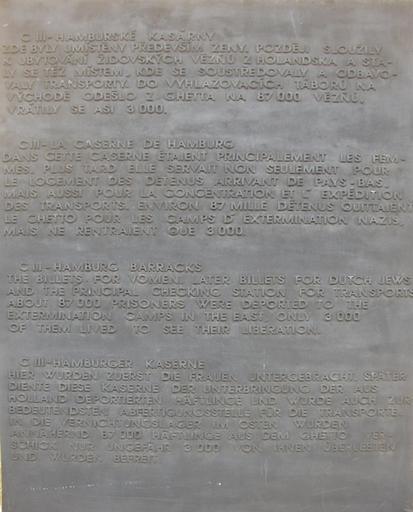 C III - HAMBURSKÉ KASÁRNY
ZDE BYLY UMÍSTĚNY PŘEDEVŠÍM ŽENY. POZDĚJI SLOUŽILY
K UBYTOVÁNÍ ŽIDOVSKÝCH VĚZŇŮ Z HOLANDSKA A STA-
LY SE TÉŽ MÍSTEM, KDE SE SOUSTŘEĎOVALY A ODBAVO-
VALY TRANSPORTY. DO VYHLAZOVACÍCH TÁBORŮ NA
VÝCHODĚ ODEŠLO Z GHETTA NA 87 000 VĚZŇŮ,
VRÁTILY SE ASI 3 000.
C III - LA CASERNE DE HAMBURG
DANS CETTE CASERNE ÉTAIENT PRINCIPALEMENT LES FEM-
MES. PLUS TARD ELLE SERVAIT NON SEULEMENT POUR
LE LOGEMENT DES DÉTENUS ARRIVANT DE PAYS-BAS,
MAIS AUSSI POUR LA CONCENTRATION ET L' EXPÉDITION
DES TRANSPORTS. ENVIRON 87 MILLE DÉTENUS QUITTAIENT
LE GHETTO POUR LES CAMPS D' EXTERMINATION NAZIS,
MAIS NE RENTRAIENT QUE 3 000.
C III - HAMBURG BARRACKS
THE BILLETS FOR VOMEN. LATER BILLETS FOR DUTCH JEWS
AND THE PRINCIPAL CHECKING STATION FOR TRANSPORT
ABOUT 87 000 PRISONERS WERE DEPORTED TO THE
EXTERMINATION CAMPS IN THE EAST. ONLY 3 000
OF THEM LIVED TO SEE THEIR LIBERATION.
C III - HAMBURGER KASERNE
HIER WURDEN ZUERST DIE FRAUEN UNTERGEBRACHT. SPÄTER
DIENTE DIESE KASERNE DER UNTERBRINGUNG DER AUS
HOLLAND DEPORTIERTEN HÄFTLINGE UND WURDE AUCH ZUR
BEDEUTENDSTEN ABFERTIGUNGSSTELLE FÜR DIE TRANSPORTE.
IN DIE VERNICHTUNGSLAGER IM OSTEN WURDEN
ANNÄHERND 87 000 HÄFTLINGE AUS DEM GHETTO VER-
SCHICK NUR UNGEFÄHR 3 000 VON IHNEN ÜBERLEBTEN
UND WURDEN BEFREIT.